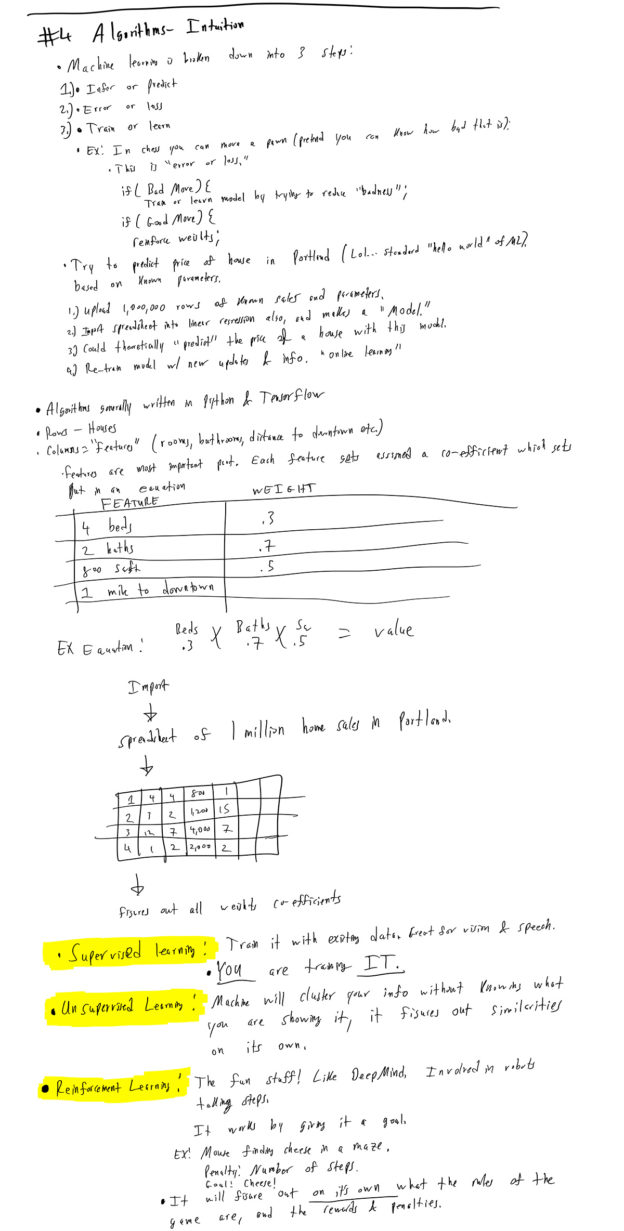 #4 Algorithms- Intuition
• Machine learning is broken down into 3 steps:
1.) • Infer or predict
2.) • Error or loss
3.) • Train or learn
• Ex: In chess you can move a pawn (pretend you can know how bad that is):
• This is "error or loss."
if( Bad Move) {
Train or learn model by trying to reduce "badness";
if (Good Move) {
reinforce weights;
• Try to predict price of house in Portland (Lol... standard "hello world" of ML).
based on known parameters.
1.) Upload 1,000,000 rows of known sales and parameters.
2.) Import spreadsheet into linear regression algo, and makes a "Model."
3.) Could theoretically "predict" the price of a house with this model.
4.) Re-train model w/ new updates & info. "online learning"
• Algorithms generally written in Python & Tensorflow
• Rows - Houses
• Columns = "Features" (rooms, bathrooms, distance to downtown etc.)
• features are most important part. Each feature gets assigned a co-efficient which gets
put in an equation
FEATURE WEIGHT
4 beds .3
2 baths .7
800 sqft .5
1 mile to downtown
Beds Baths Sq
Ex Equation: .3 X .7 X .5 = value
Import
spreadsheet of 1 million home sales in Portland.
1 4 4 800 1
2 3 2 1,200 15
3 12 7 4,000 7
4 1 2 2,000 2
figures out all weights co-efficients
• Supervised learning: Train it with existing data. Great for vision & speech.
• YOU are training IT.
• Unsupervised Learning: Machine will cluster your info without knowing what
you are showing it, it figures out similarities
on its own.
• Reinforcement Learning: The fun stuff! Like DeepMind. Involved in robots
taking steps.
It works by giving it a goal.
Ex: Mouse finding cheese in a maze.
Penalty: Number of steps.
Goal: Cheese!
• It will figure out on it's own what the rules of the
game are, and the rewards & penalties.